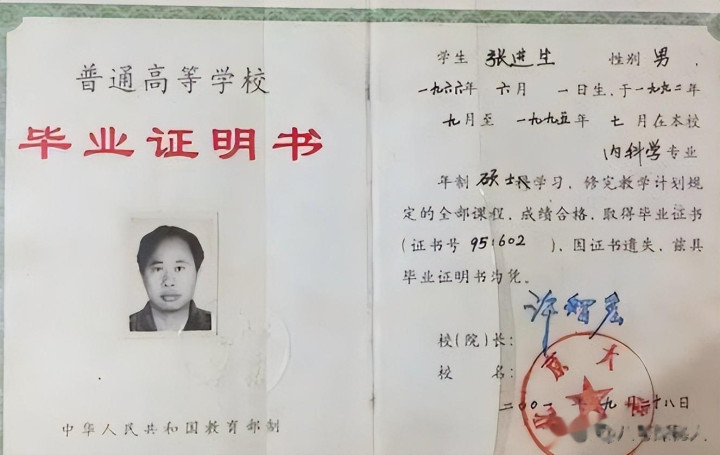 普通高等学校
毕业证明书
中华人民共和国教育部制
学生 张进生 性别 男 ,
一九六六年 六月 一日生,于一九九二年
九月至 一九九五年 七月在本校
内科学专业
年制 硕士 学习,修完教学计划规
定的全部课程,成绩合格,取得毕业证书
(证书号 951602 ),因证书遗失,兹具
毕业证明书为凭。
许智宏
校(院)长:
校 名:
二〇〇一年九月二十八日